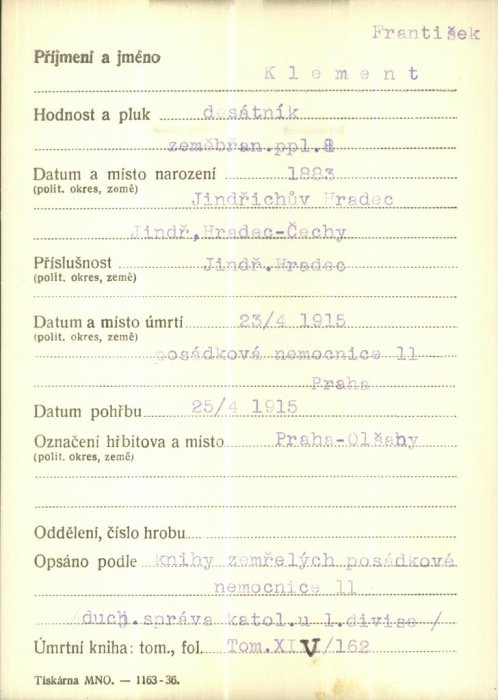 František
Příjmení a jméno
Klement
Hodnost a pluk desátník
zeměbřan.ppl.8
Datum a místo narození 1883
(polit. okres, země)
Jindřichův Hradec
Jindř,Hradec-Čechy
Příslušnost Jindř.Hradec
(polit. okres, země)
Datum a místo úmrtí 23/4 1915
(polit. okres, země)
posádková nemocnice 11
Praha
Datum pohřbu 25/4 1915
Označení hřbitova a místo Praha-Olšany
(polit. okres, země)
Oddělení, číslo hrobu
Opsáno podle knihy zemřelých posádkové
nemocnice 11
/duch.správa katol.u 1.divise /
Úmrtní kniha: tom., fol. Tom.XIV/162
Tiskárna MNO. — 1163-36.